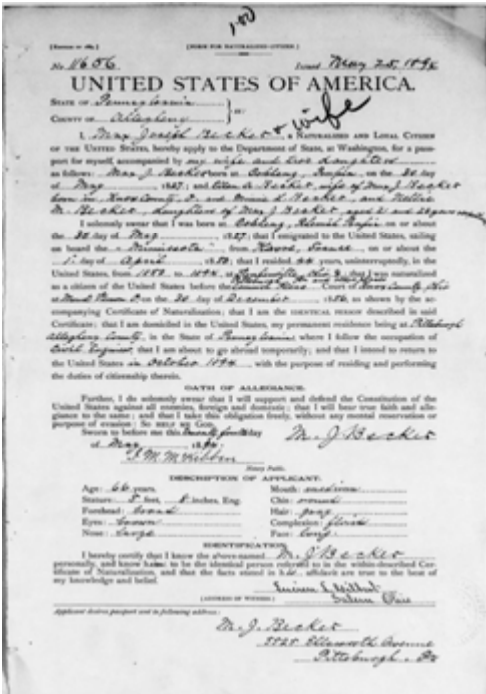 100
[EDITION OF 1889.] [FORM FOR NATURALIZED CITIZEN.]
No. 11656 Issued May 25, 1894
UNITED STATES OF AMERICA.
STATE OF Pennsylvania
COUNTY OF Allegheny
& wife
I, Max Joseph Becker, a NATURALIZED AND LOYAL CITIZEN
OF THE UNITED STATES, hereby apply to the Department of State, at Washington, for a pass-
port for myself, accompanied by my wife and two daughters
as follows: Max J. Becker born at Coblenz, on the 20 day
of May 1827; and A. Becker, wife of Max J. Becker
born in Knox County, O. and Minnie L. Becker, and Nellie
M. Becker, daughters of Max J. Becker, aged and
I solemnly swear that I was born at Coblenz, on or about
the day of May 1827; that I emigrated to the United States, sailing
on board the Minnesota from Havre, France on or about the
1st day of April 1850; that I resided 44 years, uninterruptedly, in the
United States, from 1850 to 1894 at; that I was naturalized
as a citizen of the United States before the Court of Knox County, Ohio
at Mount Vernon O. on the 20 day of December 1856, as shown by the ac-
companying Certificate of Naturalization; that I am the IDENTICAL PERSON described in said
Certificate; that I am domiciled in the United States, my permanent residence being at Pittsburgh
Allegheny County, in the State of Pennsylvania where I follow the occupation of
Civil Engineer; that I am about to go abroad temporarily; and that I intend to return
to the United States in October 1894 with the purpose of residing and performing
the duties of citizenship therein.
OATH OF ALLEGIANCE.
Further, I do solemnly swear that I will support and defend the Constitution of the
United States against all enemies, foreign and domestic; that I will bear true faith and alle-
giance to the same; and that I take this obligation freely, without any mental reservation or
purpose of evasion: SO HELP ME GOD.
Sworn to before me this twenty fourth day
of May 1894 M. J. Becker
McKibben
Notary Public.
DESCRIPTION OF APPLICANT.
Age: 66 years. Mouth: medium
Stature: 5 feet, 8 inches, Eng. Chin: round
Forehead: broad Hair: gray
Eyes: brown Complexion: florid
Nose: large Face: long
IDENTIFICATION.
I hereby certify that I know the above-named M. J. Becker
personally, and know him to be the identical person referred to in the within-described Cer-
tificate of Naturalization, and that the facts stated in his affidavit are true to the best of
my knowledge and belief.
[ADDRESS OF WITNESS] Salem Ohio
Applicant desires passport sent to following address:
M. J. Becker
Ellsworth Avenue
Pittsburgh, Pa